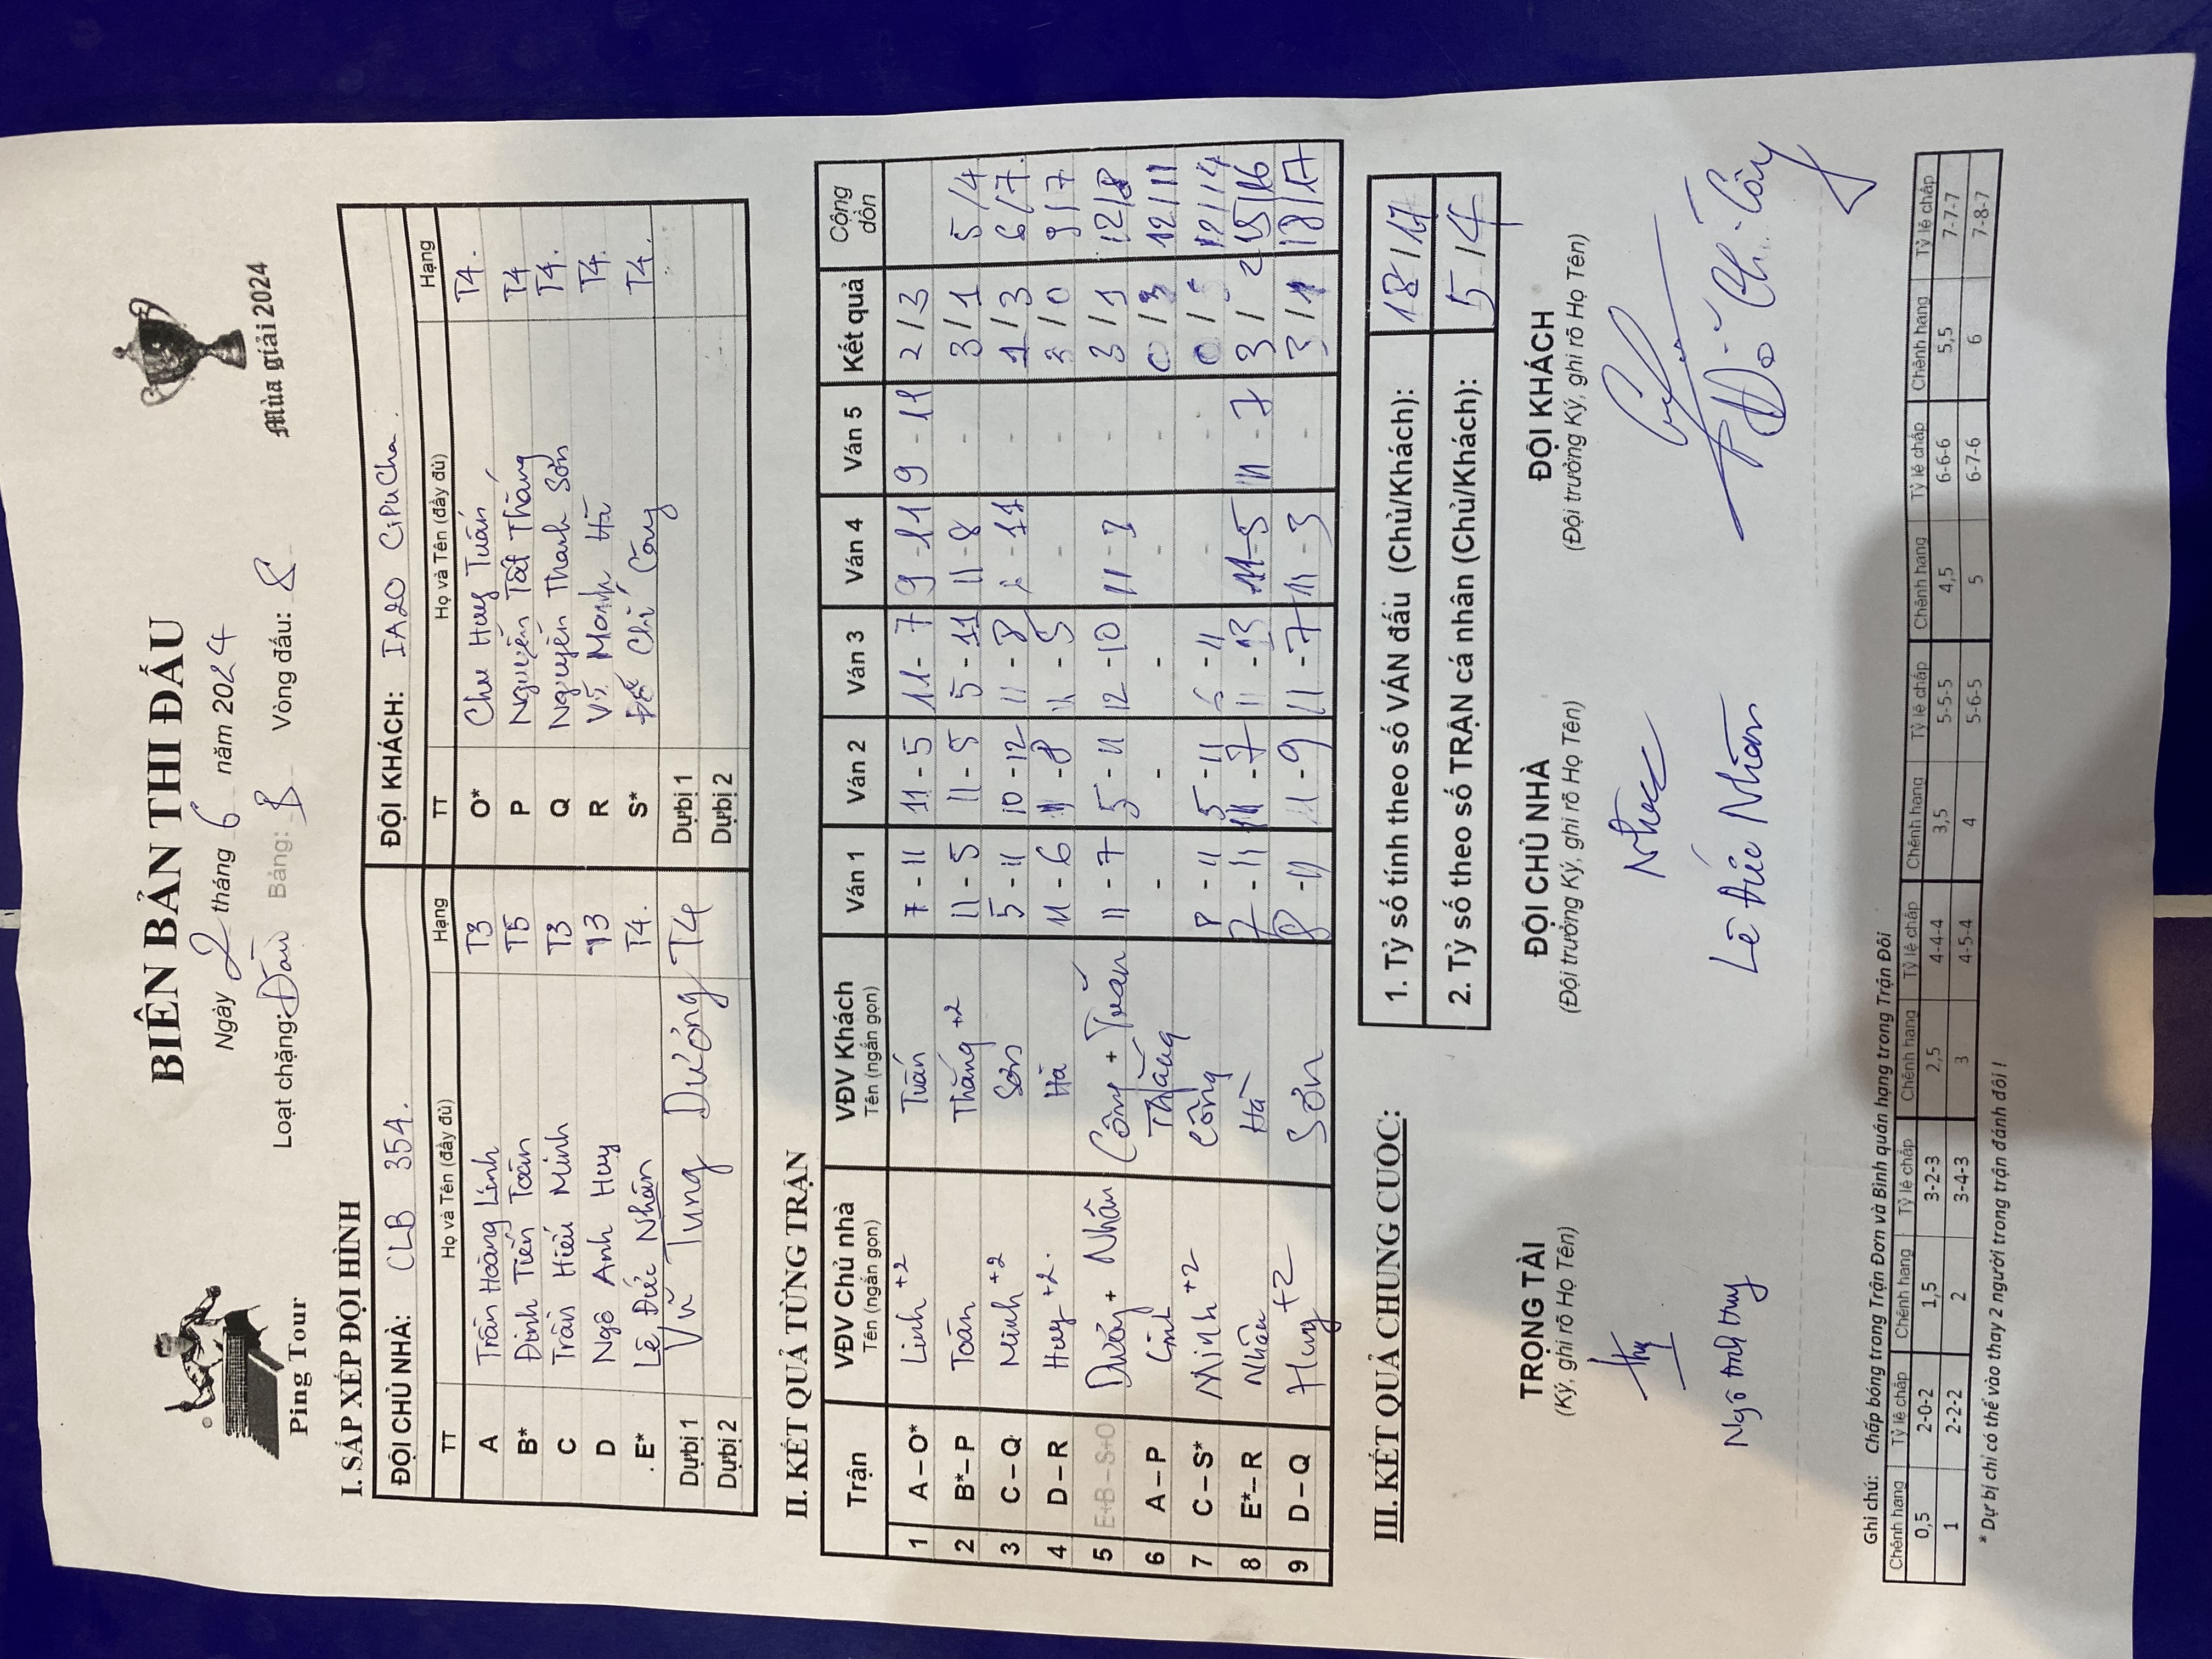 Ping Tour
BIÊN BẢN THI ĐẤU
Ngày 2 tháng 6 năm 2024
Loạt chặng: Đầu Bảng: 8 Vòng đấu: 8
Mùa giải 2024
I. SẮP XẾP ĐỘI HÌNH
ĐỘI CHỦ NHÀ: CLB 354. ĐỘI KHÁCH: IA20 CiPuCha.
TT Họ và Tên (đầy đủ) Hạng TT Họ và Tên (đầy đủ) Hạng
A Trần Hoàng Linh T3 O* Chu Huy Tuấn T4.
B* Đinh Tiến Toàn T5 P Nguyễn Tất Thắng T4
C Trần Hiếu Minh T3 Q Nguyễn Thanh Sơn T4.
D Ngô Anh Huy T3 R Vũ Mạnh Hà T4.
E* Lê Đức Nhân T4. S* Đỗ Chí Công T4.
Dự bị 1 Vũ Tùng Dương T4 Dự bị 1
Dự bị 2 Dự bị 2
II. KẾT QUẢ TỪNG TRẬN
Trận VĐV Chủ nhà Tên (ngắn gọn) VĐV Khách Tên (ngắn gọn) Ván 1 Ván 2 Ván 3 Ván 4 Ván 5 Kết quả Cộng dồn
1 A – O* Linh +2 Tuấn 7 - 11 11 - 5 11 - 7 9 - 11 9 - 11 2 / 3
2 B* – P Toàn Thắng +2 11 - 5 11 - 5 5 - 11 11 - 8 - 3 / 1 5 / 4
3 C – Q Minh +2 Sơn 5 - 11 10 - 12 11 - 8 - 11 - 1 / 3 6 / 7.
4 D – R Huy +2. Hà 11 - 6 11 - 8 11 - 5 - - 3 / 0 9 / 7
5 E+B – S+O Dương + Nhân Công + Tuấn 11 - 7 5 - 11 12 - 10 11 - - 3 / 1 12 / 8
6 A – P Linh Thắng - - - - - 0 / 3 12 / 11
7 C – S* Minh +2 Công 8 - 11 5 - 11 - 11 - - 0 / 12 / 14
8 E* – R Nhân Hà 7 - 11 11 - 7 11 - 13 11 - 5 11 - 7 3 / 2 15 / 16
9 D – Q Huy +2 Sơn 8 - 11 11 - 9 11 - 7 11 - 3 - 3 / 1 18 / 17
III. KẾT QUẢ CHUNG CUỘC:
1. Tỷ số tính theo số VÁN đấu (Chủ/Khách): 18 / 17
2. Tỷ số theo số TRẬN cá nhân (Chủ/Khách): 5 / 4
TRỌNG TÀI ĐỘI CHỦ NHÀ ĐỘI KHÁCH
(Ký, ghi rõ Họ Tên) (Đội trưởng Ký, ghi rõ Họ Tên) (Đội trưởng Ký, ghi rõ Họ Tên)
Lê Đức Nhân Đỗ Chí Công
Ghi chú: Chấp bóng trong Trận Đơn và Bình quân hạng trong Trận Đôi
Chênh hạng Tỷ lệ chấp Chênh hạng Tỷ lệ chấp Chênh hạng Tỷ lệ chấp Chênh hạng Tỷ lệ chấp Chênh hạng Tỷ lệ chấp Chênh hạng Tỷ lệ chấp
0,5 2-0-2 1,5 3-2-3 2,5 4-4-4 3,5 5-5-5 4,5 6-6-6 5,5 7-7-7
1 2-2-2 2 3-4-3 3 4-5-4 4 5-6-5 5 6-7-6 6 7-8-7
* Dự bị chỉ có thể vào thay 2 người trong trận đánh đôi !